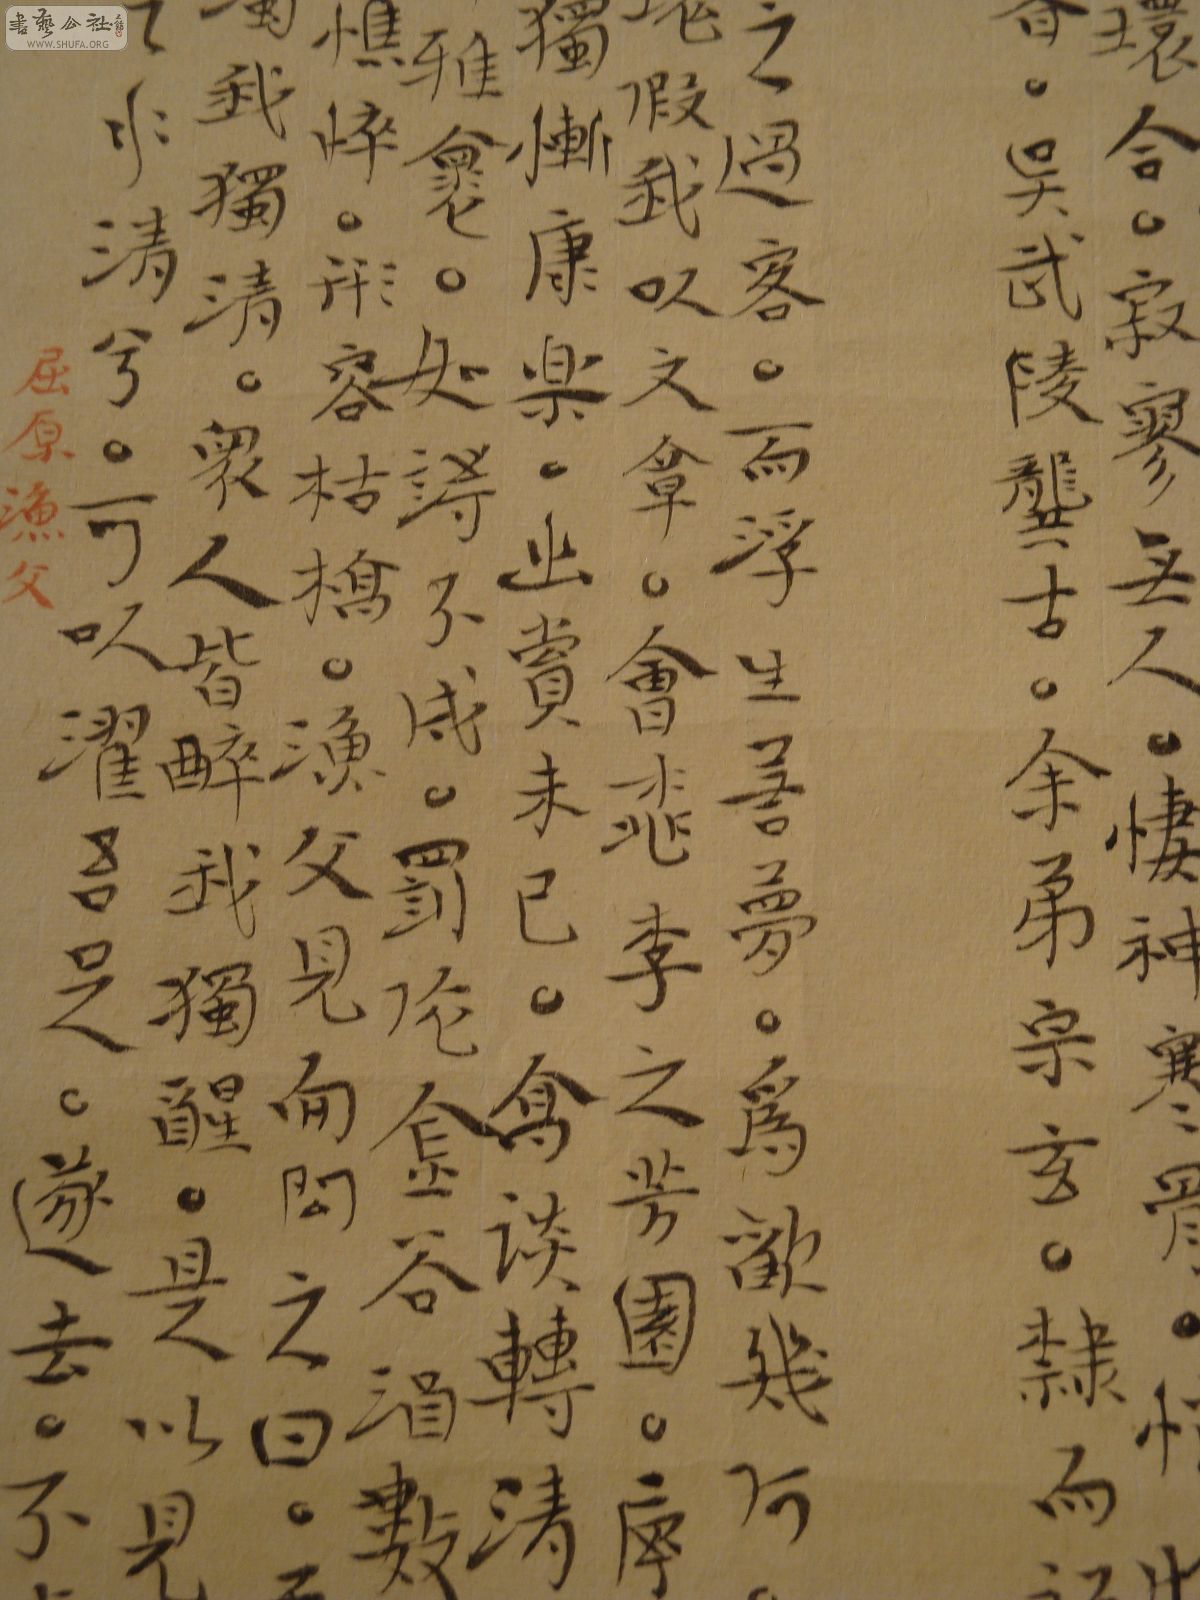 環合。寂寥無人。悽神寒骨。悄
吳武陵龔古。余弟宗玄。隸而
之過客。而浮生若夢。為歡幾何。
塊假我以文章。會桃李之芳園。序
獨慚康樂。幽賞未已。高談轉清
雅褱。如詩不成。罰依金谷酒數
憔悴。形容枯槁。漁父見而問之曰。
我獨清。衆人皆醉我獨醒。是以見
水清兮。可以濯吾足。遂去。不
屈原漁父
書藝公社
WWW.SHUFA.ORG